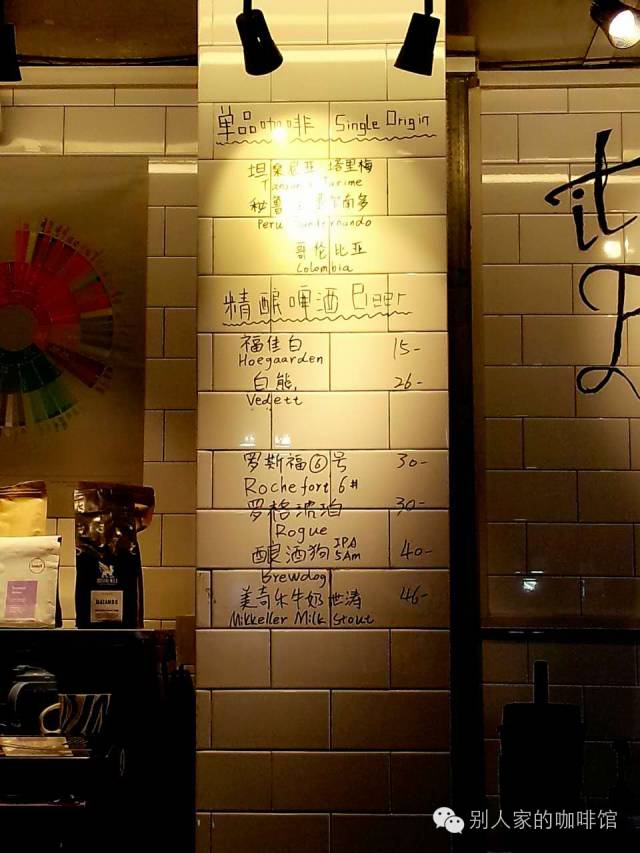 単品咖啡 Single Origin
坦桑尼亚 塔里梅
Tarime
秘鲁
Peru
哥伦比亚
Colombia
精酿啤酒 Beer
福佳白 15-
Hoegaarden
白熊 26-
Vedett
罗斯福⑥号 30-
Rochefort 6#
罗格琥珀 30-
Rogue
酿酒狗 IPA 5Am 40-
Brewdog
美奇乐牛奶世涛 46-
Mikkeller Milk Stout
it
别人家的咖啡馆